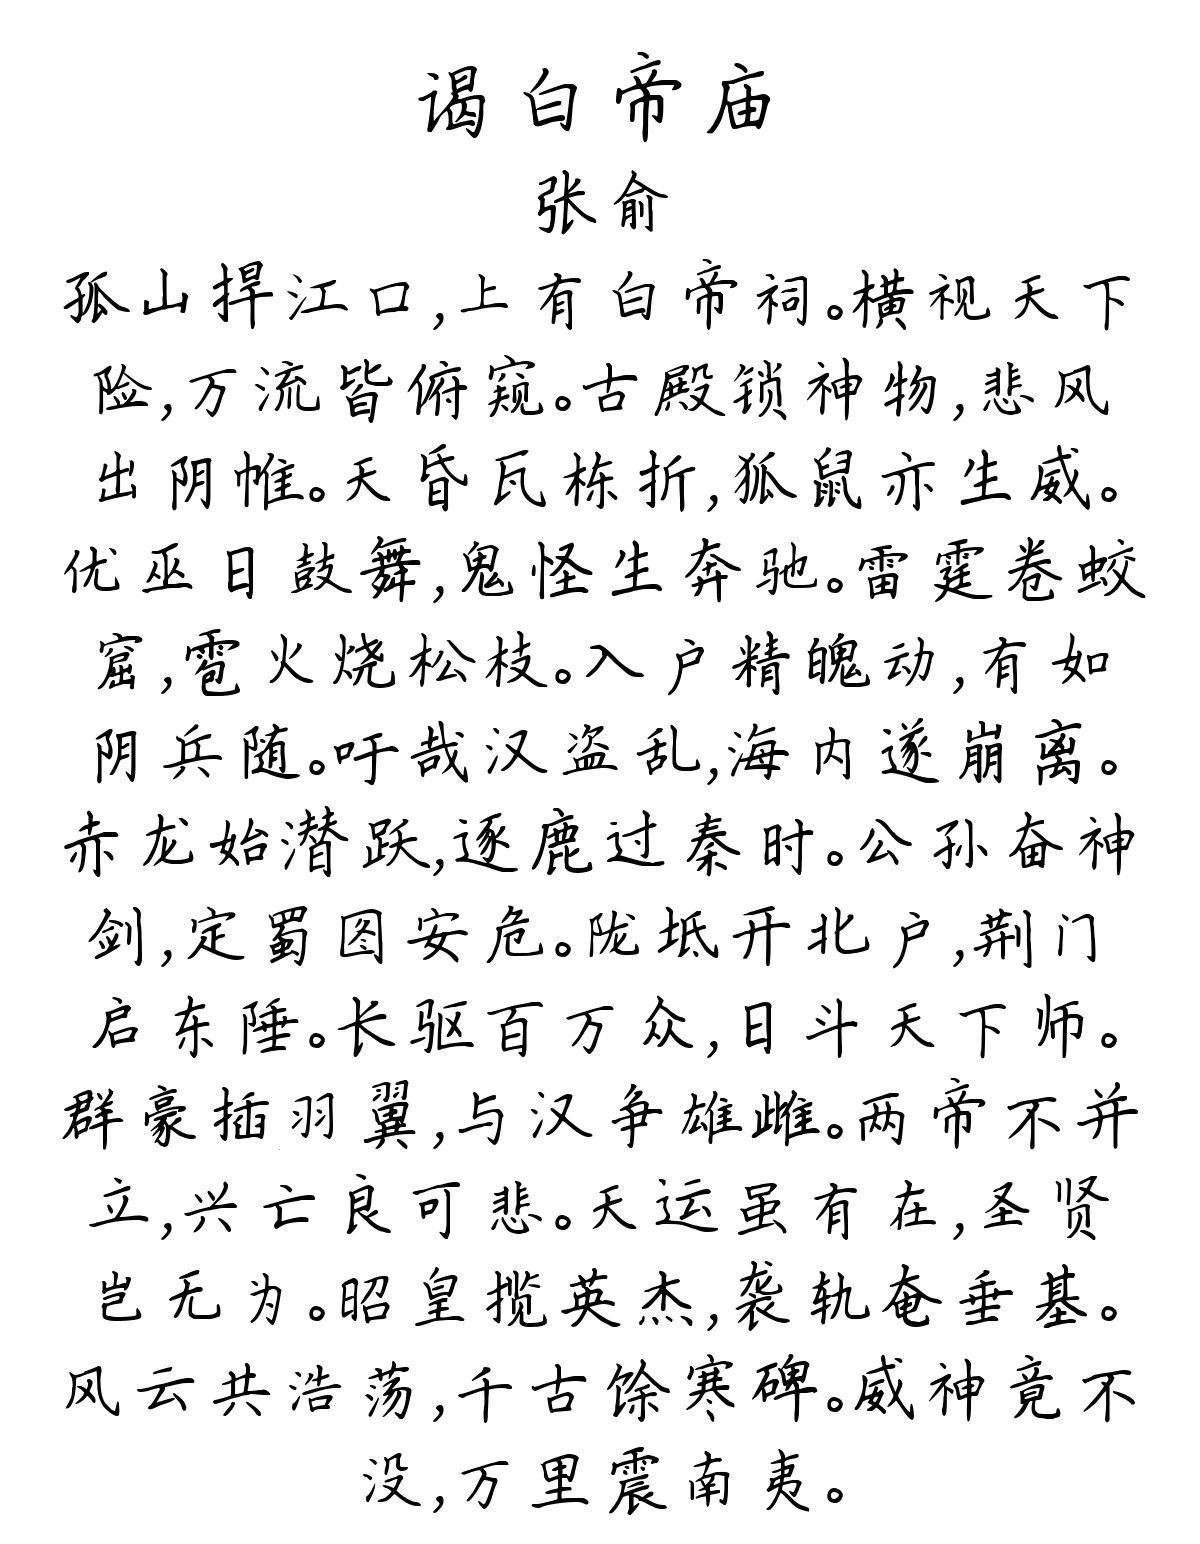 谒白帝庙
张俞
孤山捍江口,上有白帝祠。横视天下
险,万流皆俯窥。古殿锁神物,悲风
出阴帷。天昏瓦栋折,狐鼠亦生威。
优巫日鼓舞,鬼怪生奔驰。雷霆卷蛟
窟,雹火烧松枝。入户精魄动,有如
阴兵随。吁哉汉盗乱,海内遂崩离。
赤龙始潜跃,逐鹿过秦时。公孙奋神
剑,定蜀图安危。陇坻开北户,荆门
启东陲。长驱百万众,日斗天下师。
群豪插羽翼,与汉争雄雌。两帝不并
立,兴亡良可悲。天运虽有在,圣贤
岂无为。昭皇揽英杰,袭轨奄垂基。
风云共浩荡,千古馀寒碑。威神竟不
没,万里震南夷。